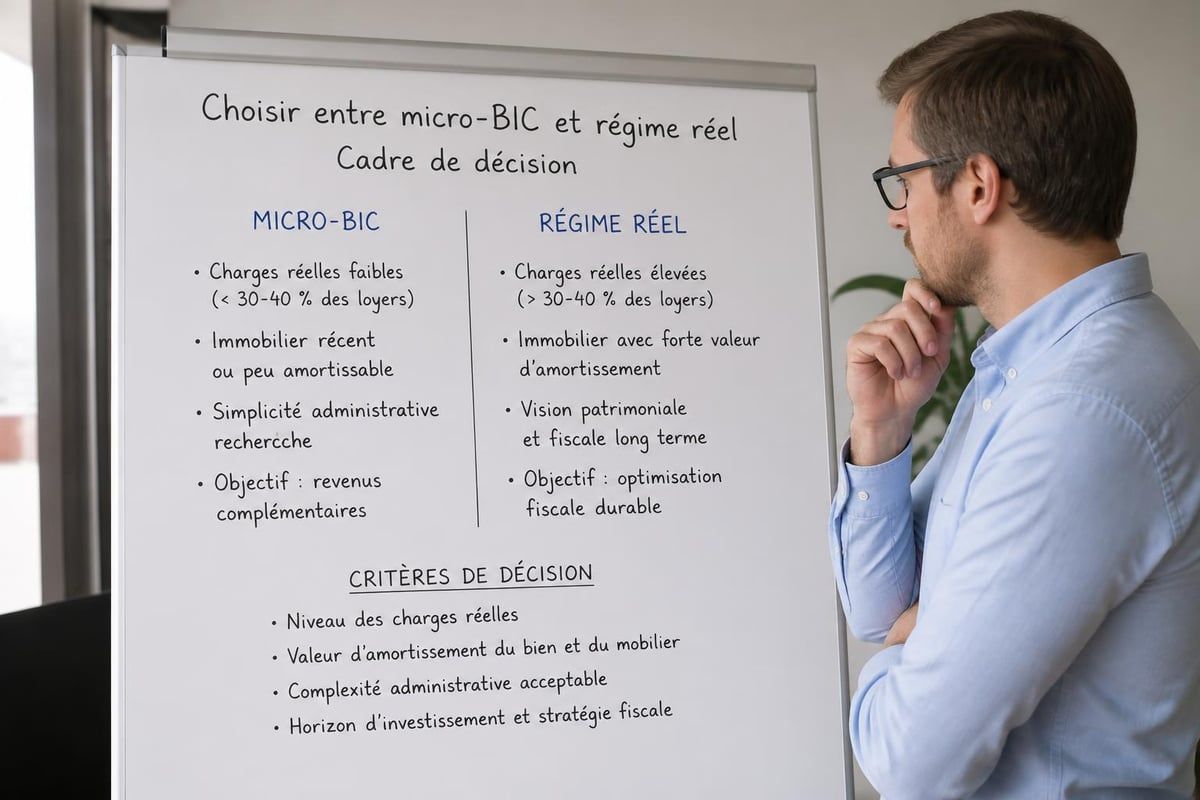 Choisir entre micro-BIC et régime réel
Cadre de décision
MICRO-BIC
• Charges réelles faibles
(< 30-40 % des loyers)
• Immobilier récent
ou peu amortissable
• Simplicité administrative
rechercche
• Objectif : revenus
complémentaires
RÉGIME RÉEL
• Charges réelles élevées
(> 30-40 % des loyers)
• Immobilier avec forte valeur
d'amortissement
• Vision patrimoniale
et fiscale long terme
• Objectif : optimisation
fiscale durable
CRITÈRES DE DÉCISION
• Niveau des charges réelles
• Valeur d'amortissement du bien et du mobilier
• Complexité administrative acceptable
• Horizon d'investissement et stratégie fiscale